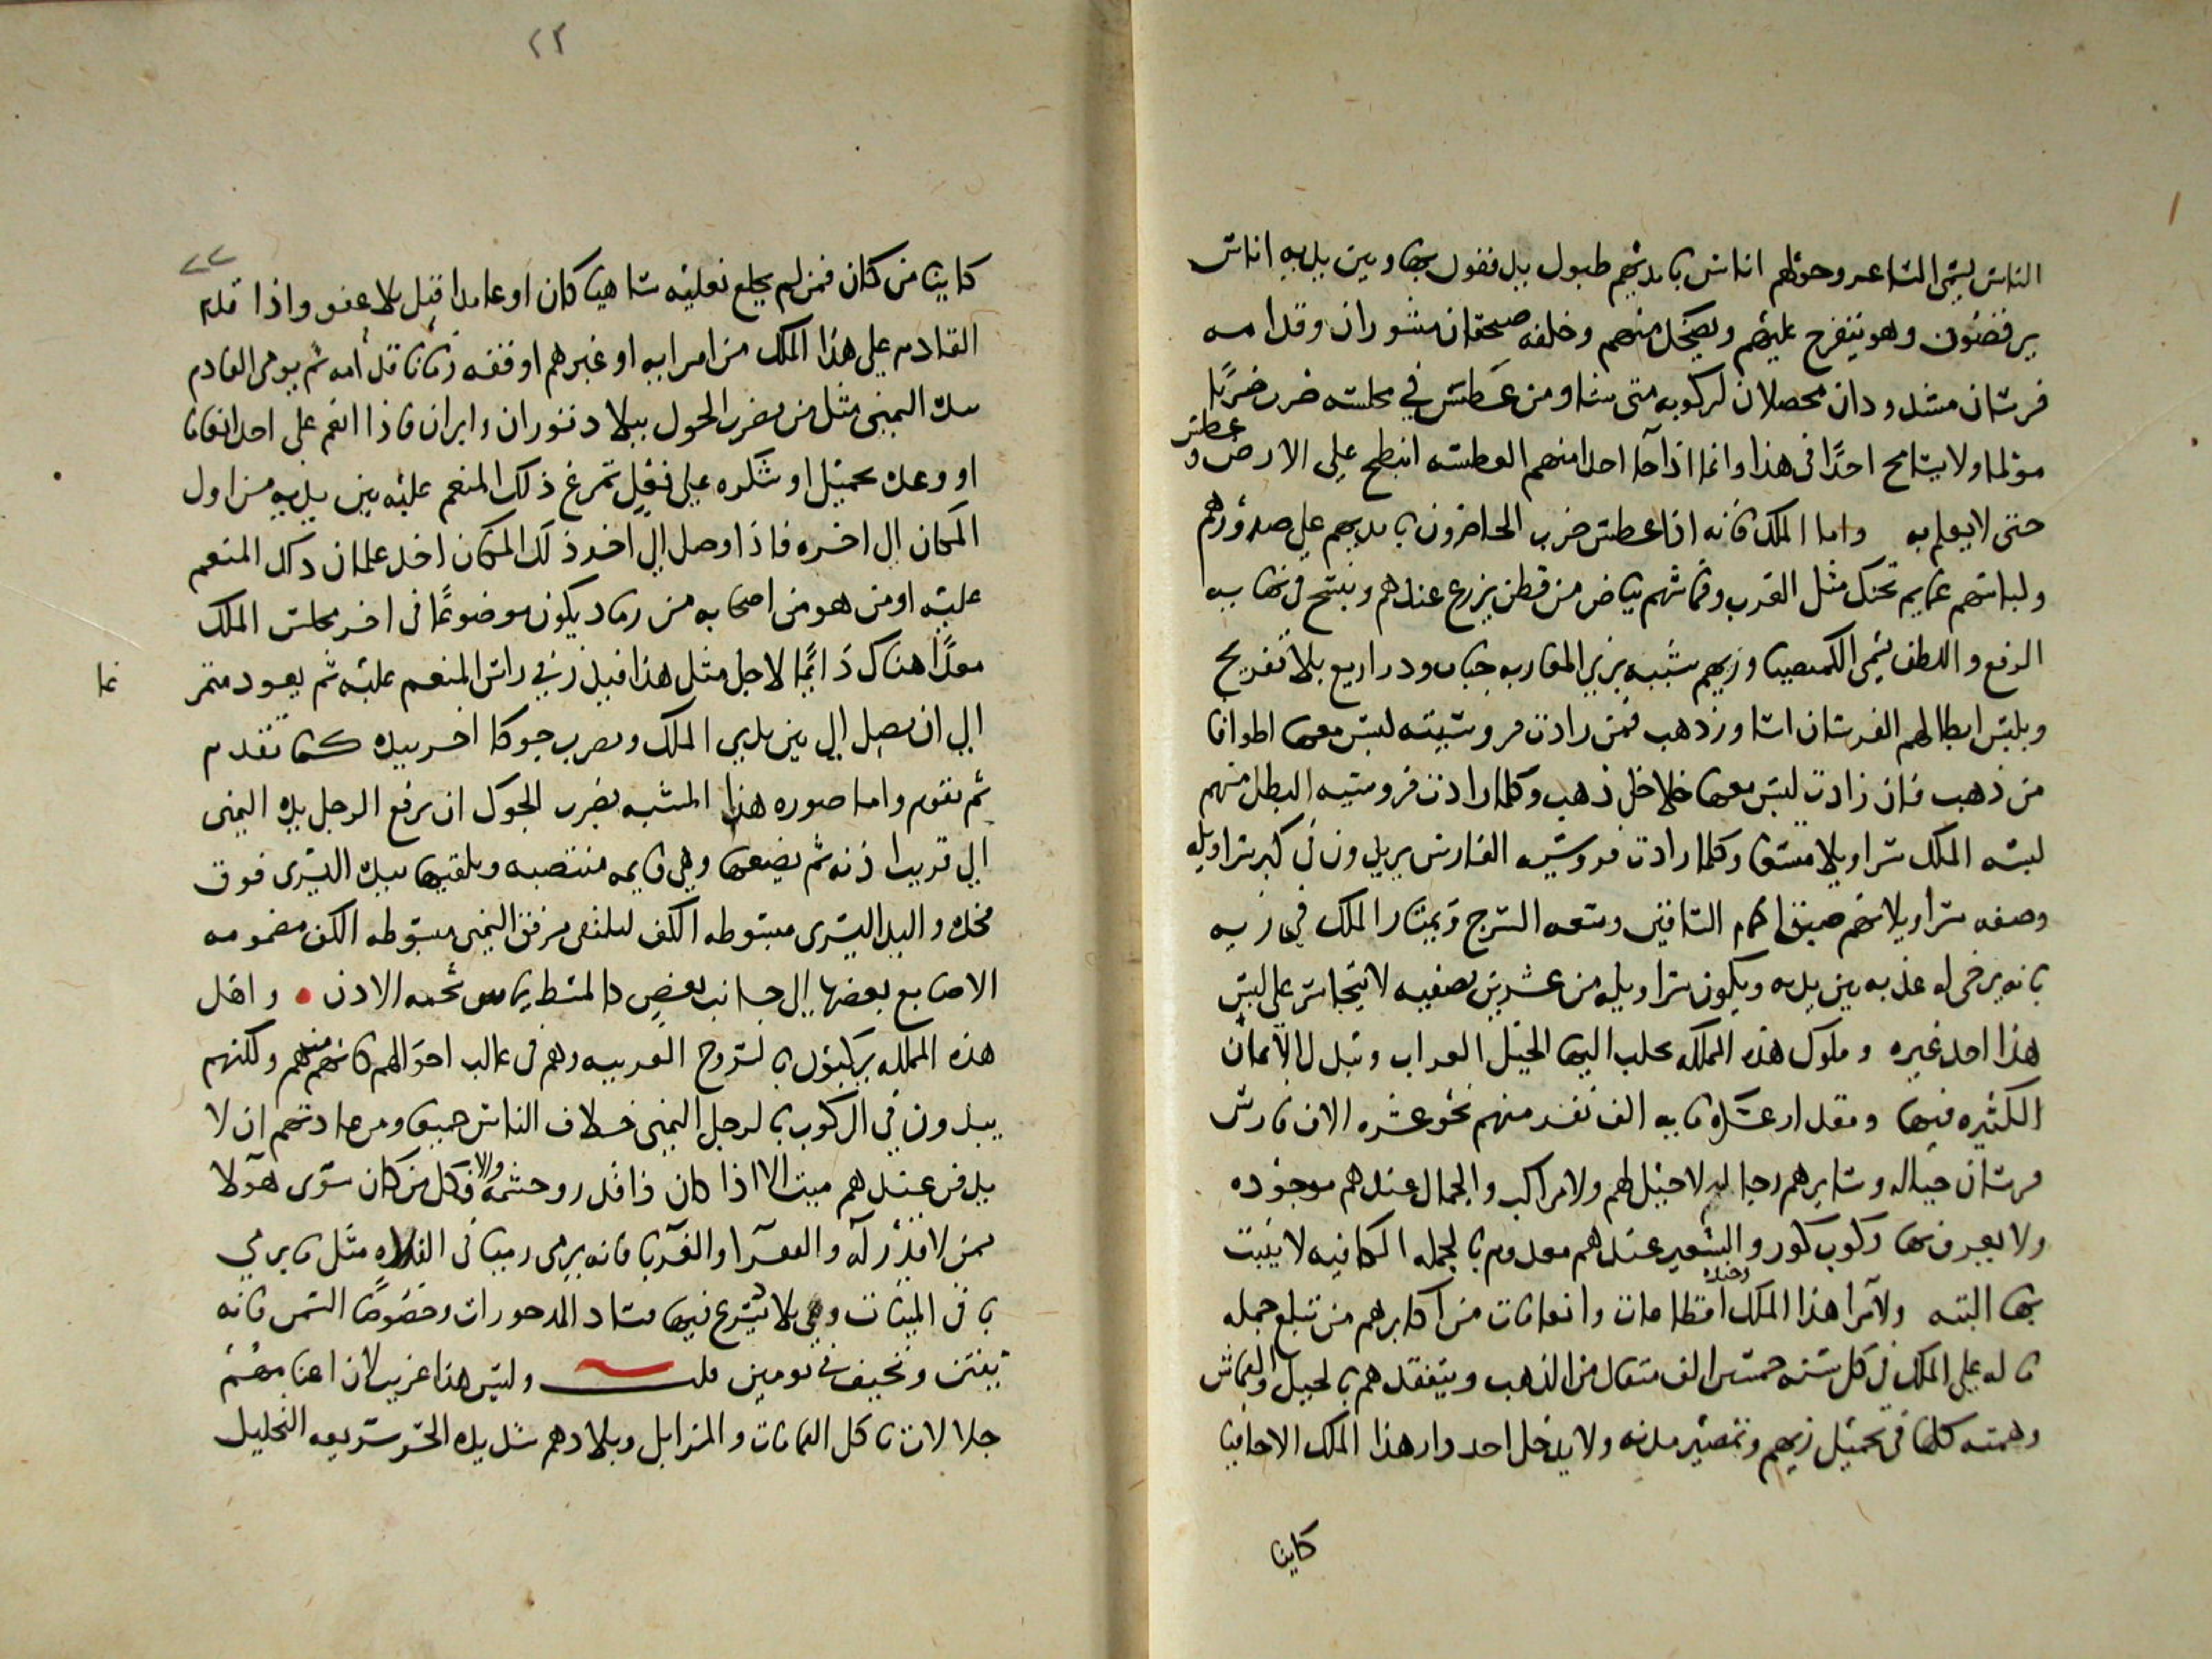 الناس يسمى الشاعر وحولهم اناس بايديهم طبول يدفعون بها وبين يديه اناس
يرقصون وهو يتفرج عليهم ويضحك منهم وخلفه صنجقان منشوران وقدامه
فرسان مشدودان محصلان لركوبه متى شا ومن عطس في مجلسه ضرب ضربًا
مؤلما ولا يسامح احدًا في هذا وانما اذا جا احدا منهم العطسه انبطح على الارض وعطس
حتى لا يعلم به واما الملك فانه اذا عطس ضرب الحاضرون بايديهم على صدورهم
ولباسهم عمايم بحنك مثل العرب وقماشهم بياض من قطن يزرع عندهم وينسج في نهايه
الرفع واللطف يسمى الكمصيا وزيهم شبيه بزي المغاربه جباب ودراريع بلا تفريج
ويلبس ابطالهم الفرسان اساور ذهب فمن زادت فروسيته لبس معها اطواقا
من ذهب فان زادت لبس معها خلاخل ذهب وكلما زادت فروسيه البطل منهم
لبسه الملك سراويلا متسعا وكلما زادت فروسيه الفارس يزيدون في كبر سراويله
وصفه سراويلاتهم ضيق اكمام الساقين وسعه السرج ويمتاز الملك في زيه
بانه يرخى له عذبه بين يديه ويكون سراويله من عشرين نصفيه لا يتجاسر على لبس
هذا احد غيره وملوك هذه المملكه تجلب اليها الخيل العراب وتبذل الاثمان
الكثيره فيها ومقدار عسكره مايه الف نفر منهم نحو عشره الاف فارس
فرسان خياله وسايرهم رجاله لا خيل لهم ولا مراكب والجمال عندهم موجوده
ولا يعرفون لها ركوب كور والشعير عندهم معدوم بالجمله الكافيه لا ينبت
بها البته ولامرا هذا الملك وجنده اقطاعات وانعامات من اكابرهم من تبلغ جمله
ما له على الملك في كل سنه خمسين الف مثقال من الذهب ويتفقدهم بالخيل والقماش
وهمته كلها في تجميل زيهم وتمصير مدنه ولا يدخل احد دار هذا الملك الا حافيا
كاينا
٢٢
كاينا من كان فمن لم يخلع نعليه ساهيا كان او عامدا قتل بلا عفو واذا قدم
القادم على هذا الملك من امرايه او غيرهم اوقفه زمانا قدامه ثم يومى القادم
بيده اليمنى مثل من يضرب الجوك ببلاد توران وايران فاذا انعم على احد انعاما
او وعده بجميل او شكره على فعل تمرغ ذلك المنعم عليه بين يديه من اول
المكان الى اخره فاذا وصل الى اخر ذلك المكان اخذ غلمان ذلك المنعم
عليه او من هو من اصحابه من رماد يكون موضوعًا في اخر مجلس الملك
معدًا هناك دايمًا لاجل مثل هذا فيذر في راس المنعم عليه ثم يعود متمر
غا
الى ان يصل الى بين يدي الملك ويضرب جوكا اخر بيده كما تقدم
ثم يقوم واما صوره هذا المشبه بضرب الجوك ان يرفع الرجل يده اليمنى
الى قريب اذنه ثم يضعها وهي قايمه منتصبه ويلقيها بيده اليسرى فوق
فخذه واليد اليسرى مبسوطه الكف لتلقى مرفق اليمنى مبسوطه الكف مضمومه
الاصابع بعضها الى جانب بعض كالمشط يماس شحمه الاذن • واهل
هذه المملكه يركبون بالسروج العربيه وهم في غالب احوالهم كانهم منهم ولكنهم
يبدون في الركوب بالرجل اليمنى خلاف الناس جميعا ومن عادتهم ان لا
يدفن عندهم ميت الا اذا كان ذا قدر وحشمه والا فكل من كان سوى هولا
ممن لا قدر له والفقرا والغربا فانه يرمى رميا في الفلاه مثل ما يرمي
باقي الميتات وهي بلاد يسرع فيها فساد المدخورات وخصوصًا السمن فانه
ينتن ويخيف في يومين قلت وليس هذا غريب لان اغنامهم
جلالات تاكل القمامات والمزابل وبلادهم شديده الحر سريعه التحليل